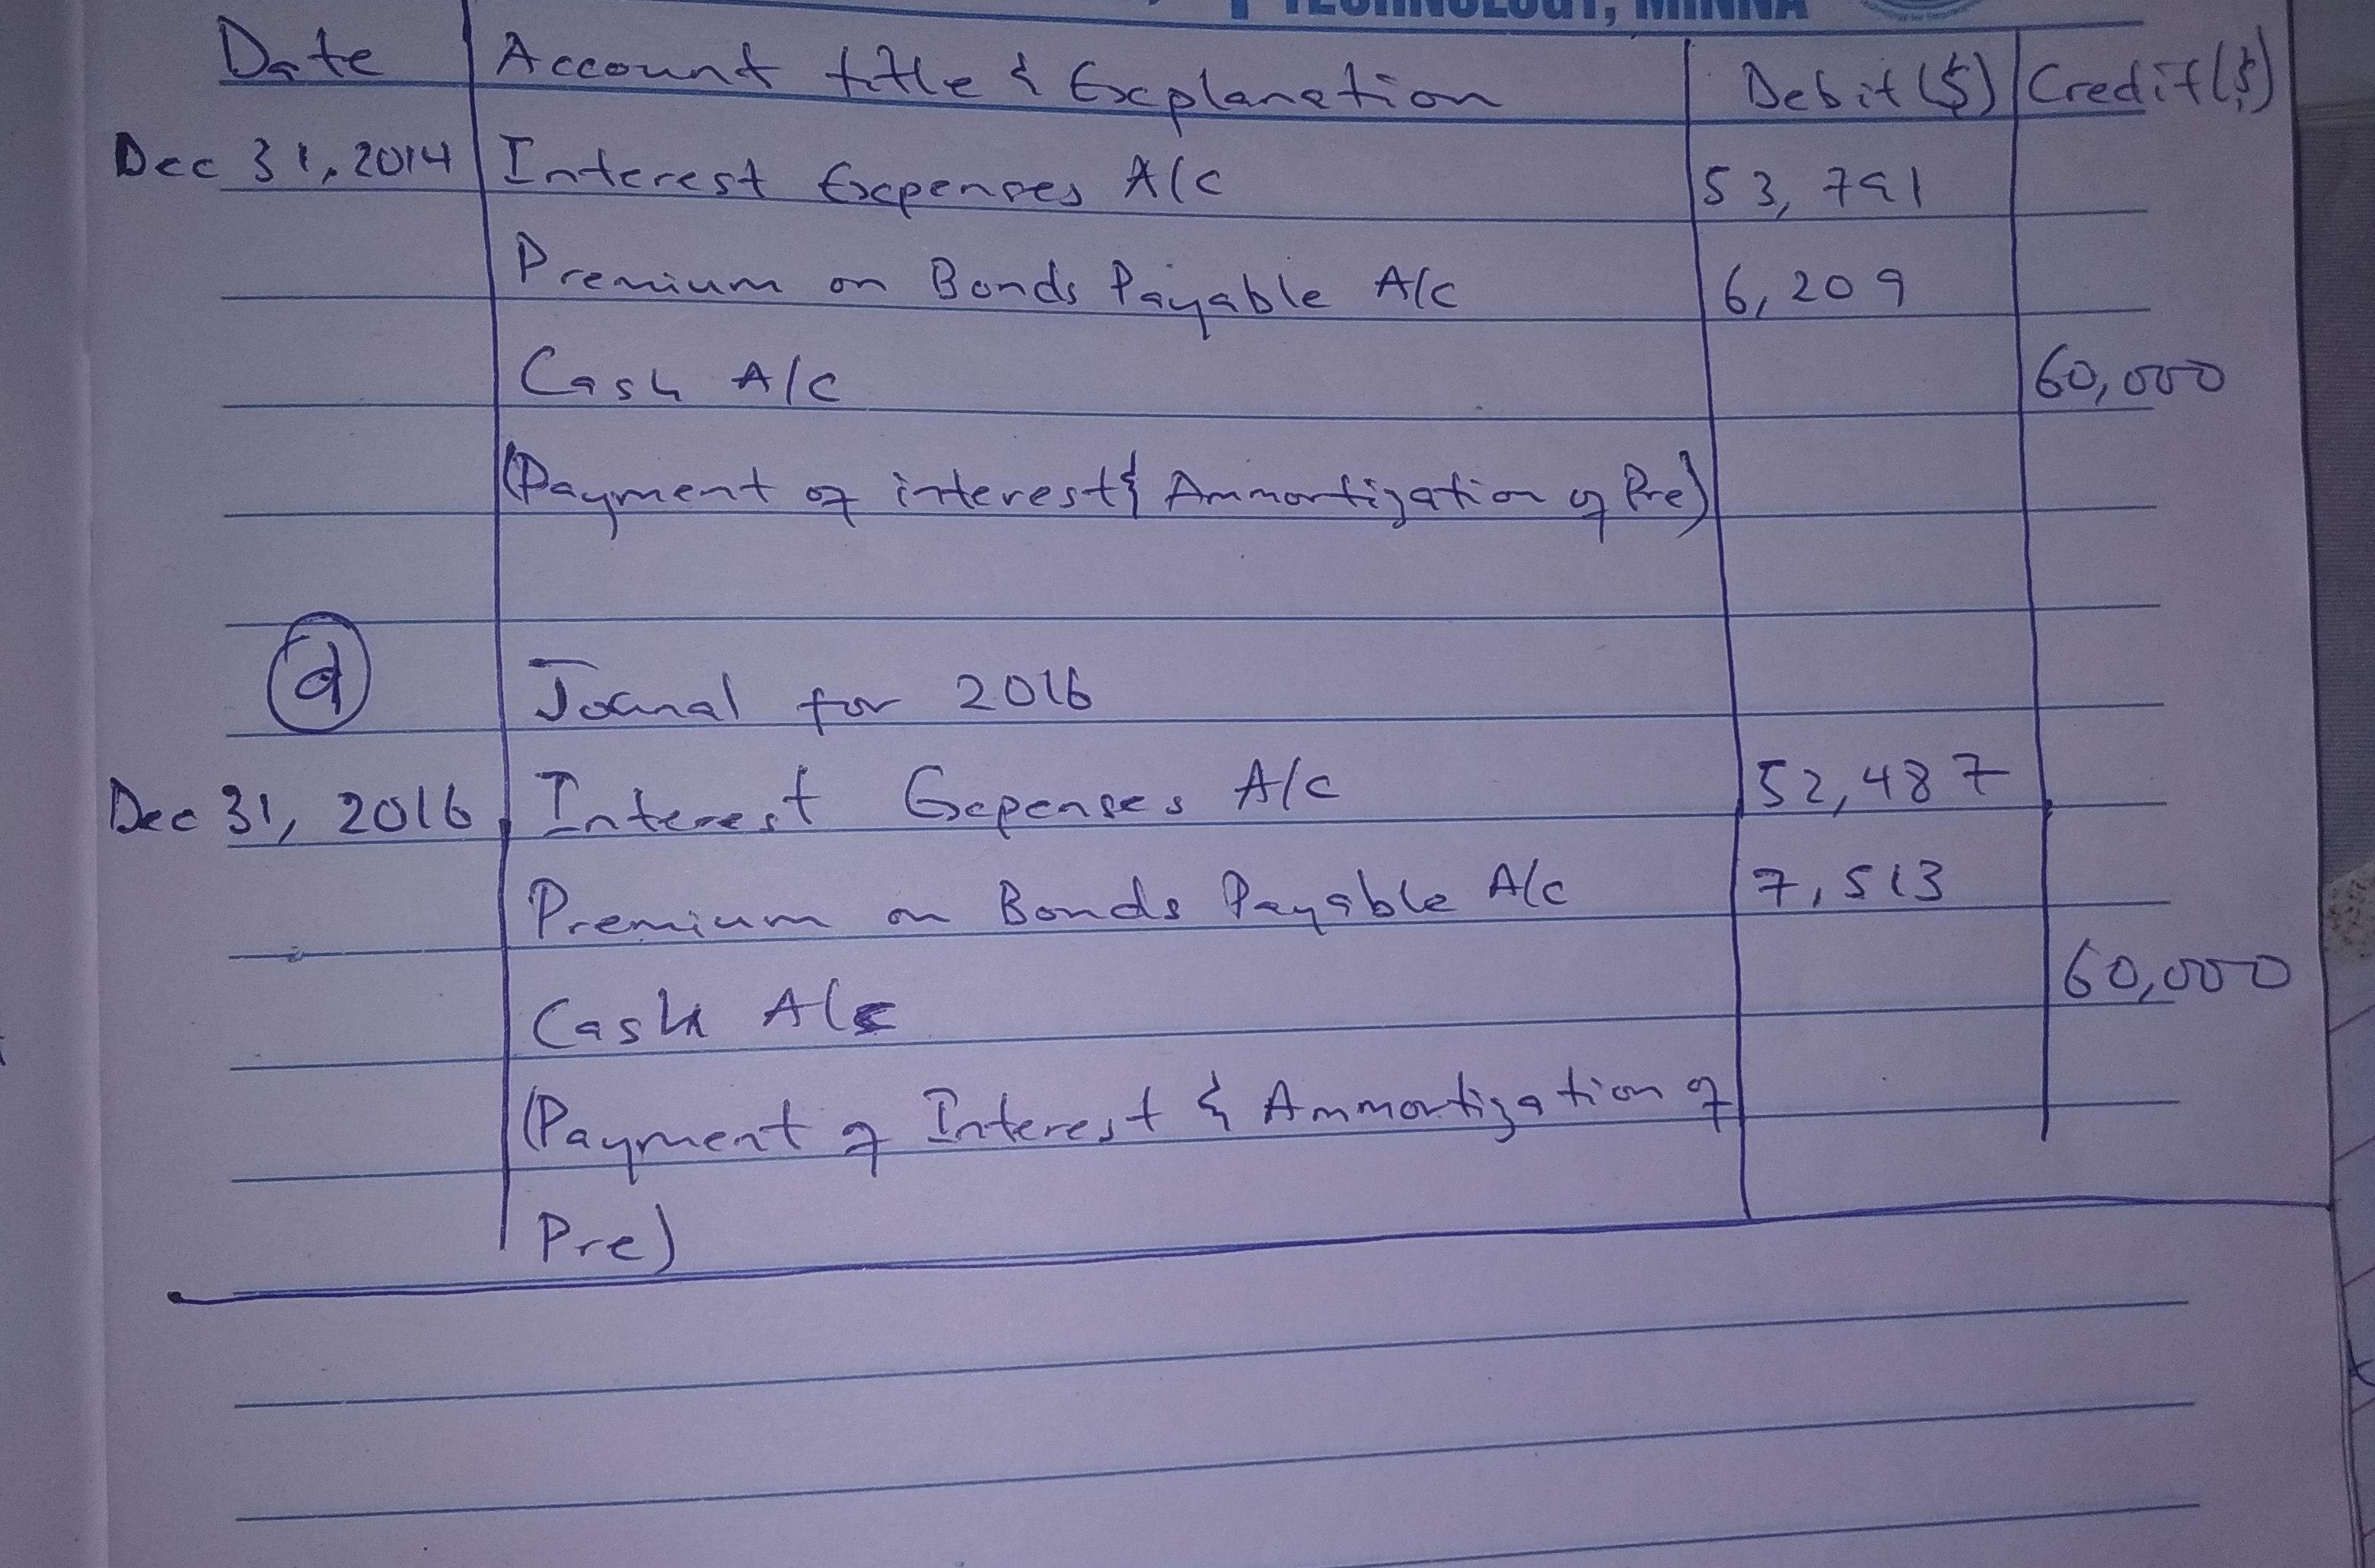 TECHNOLOGY, MINNA
Date Account title & Explanation Debit ($) Credit ($)
Dec 31, 2014 Interest Expenses A/c 53,791
Premium on Bonds Payable A/c 6,209
Cash A/c 60,000
(Payment of interest & Ammortization of Pre)
d Jounal for 2016
Dec 31, 2016 Interest Expenses A/c 52,487
Premium on Bonds Payable A/c 7,513
Cash A/c 60,000
(Payment of Interest & Ammortization of
Pre)